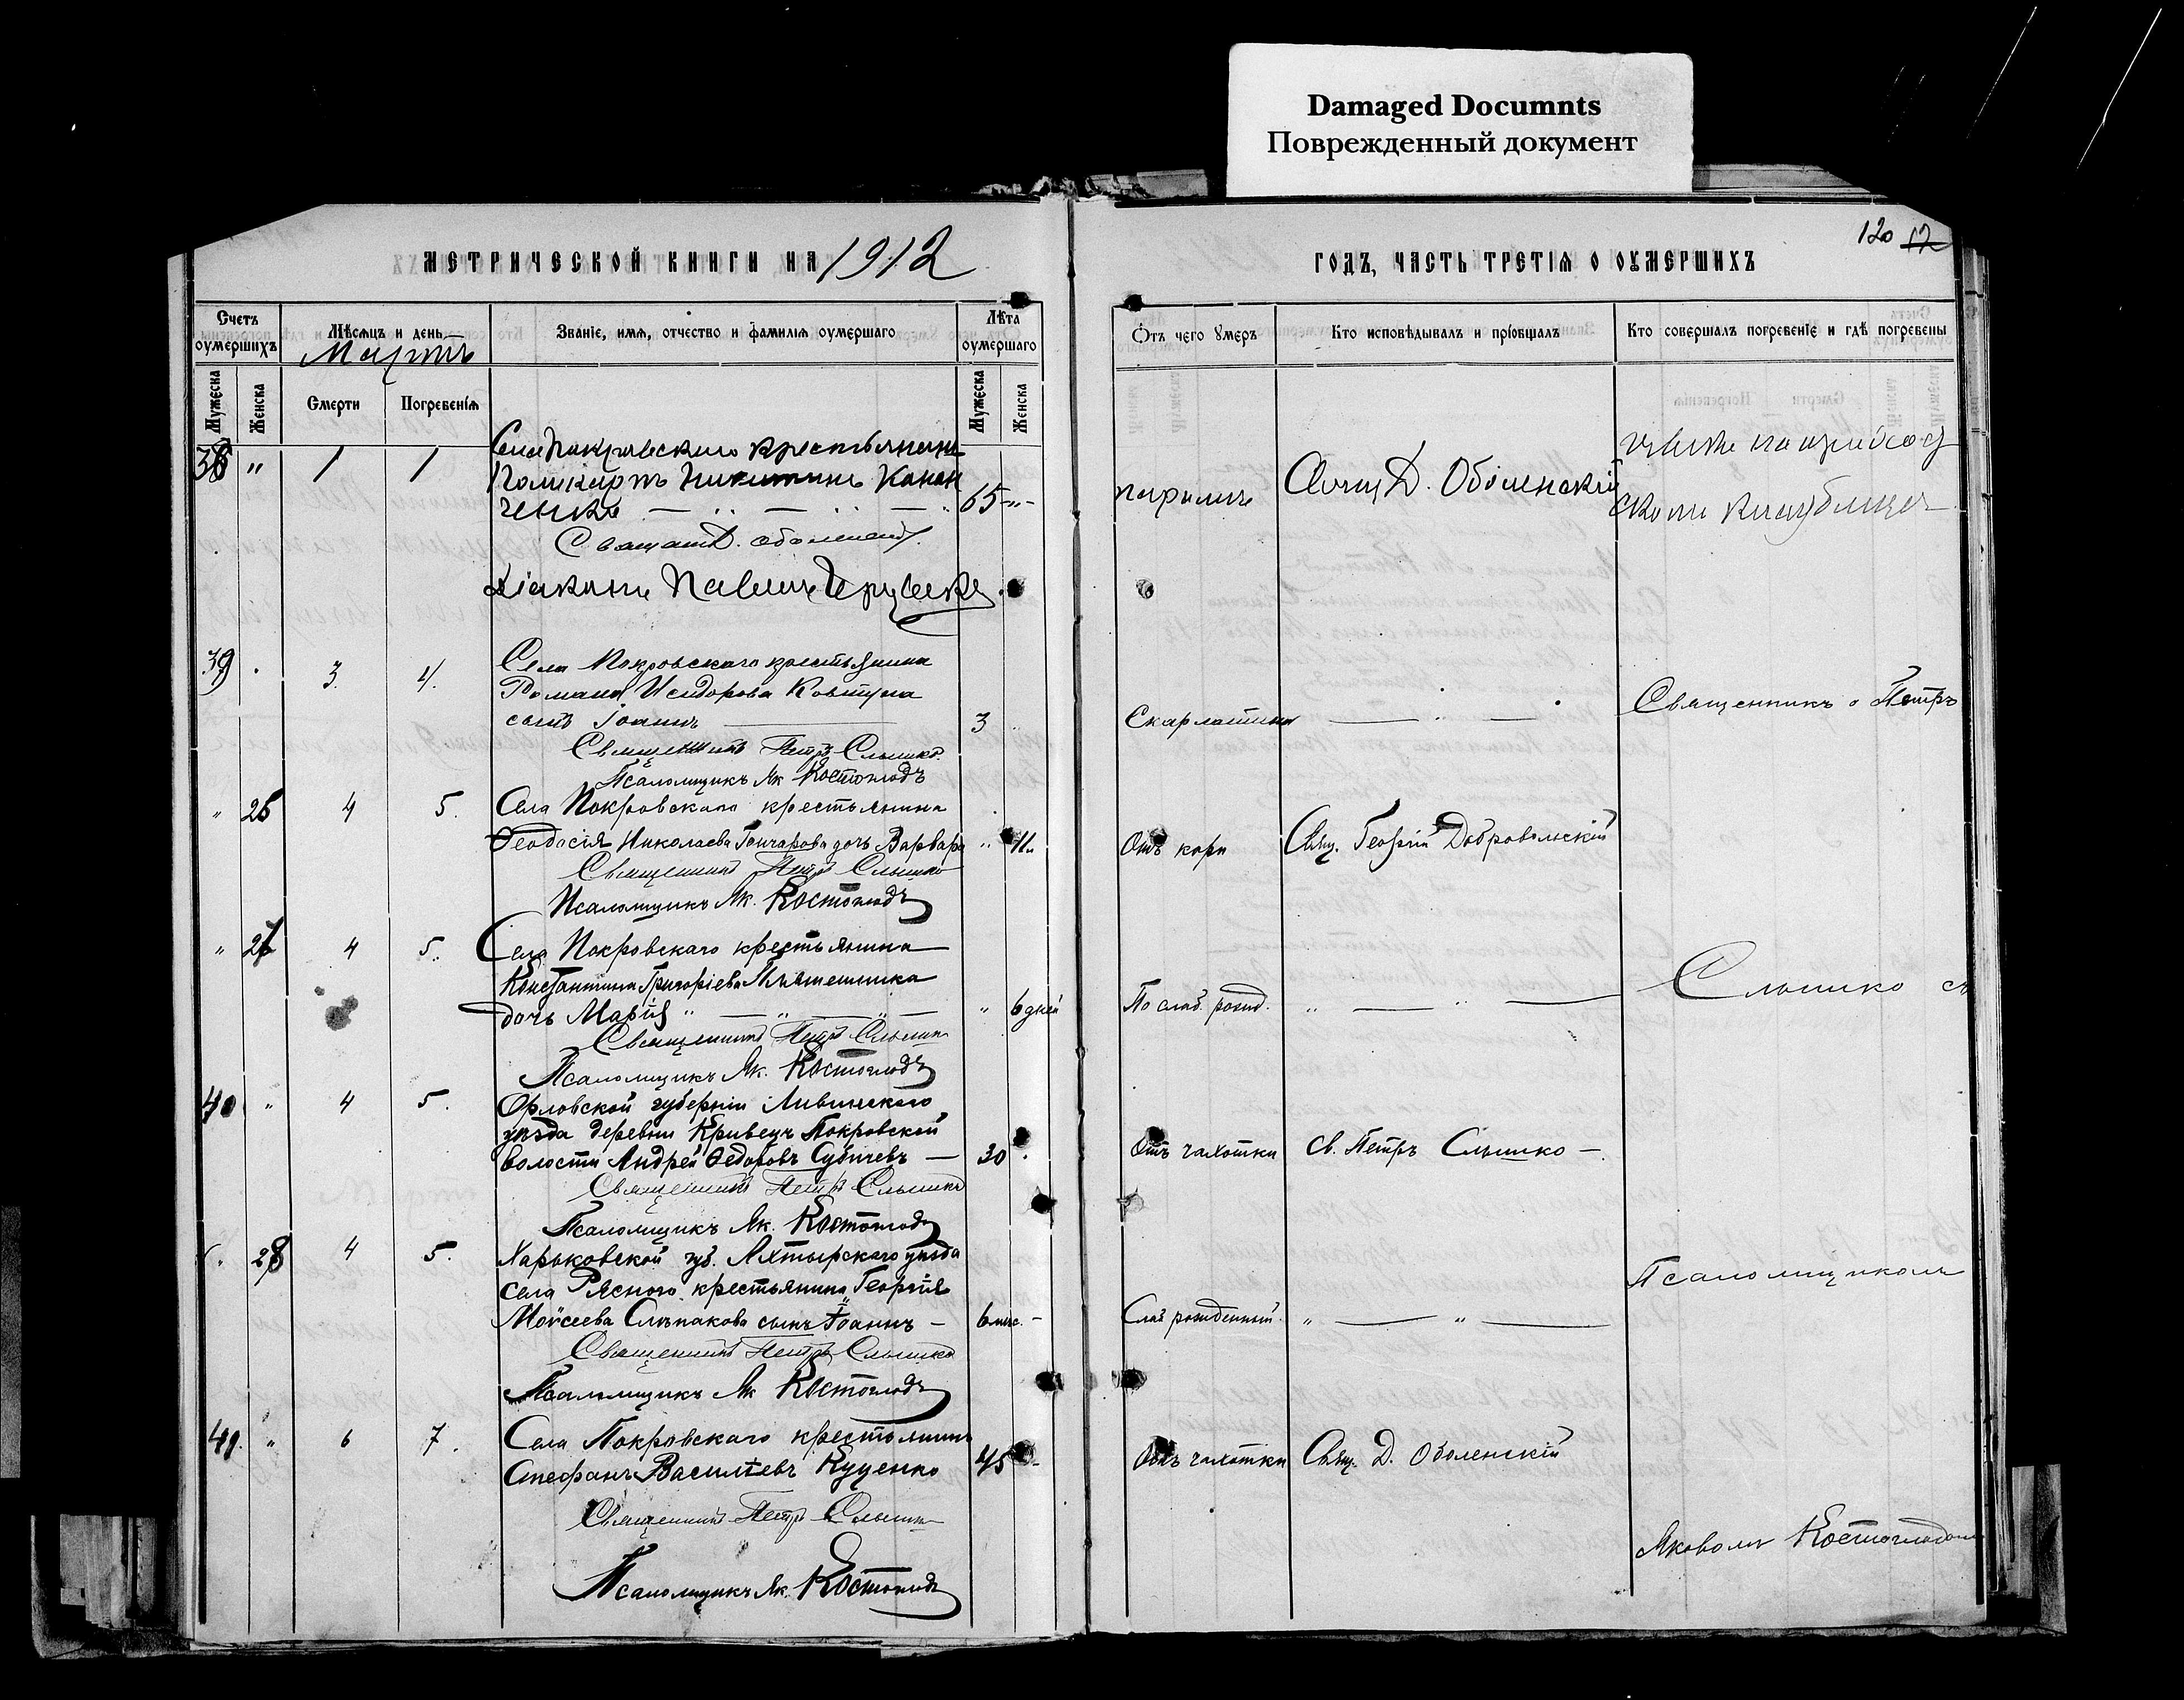 Damaged Documnts
Поврежденный документ
120 12
МЕТРИЧЕСКОЙ КНИГИ НА 1912
ГОДЪ, ЧАСТЬ ТРЕТІѦ О ОУМЕРШИХЪ
Счетъ оумершихъ
Мѣсѧцъ и день
Мартъ
Званіе, имѧ, отчество и фамилїѧ оумершаго
Лѣта оумершаго
Ѿтъ чего оумеръ
Кто исповѣдывалъ и прїобщалъ
Кто совершалъ погребенїе и гдѣ погребены
Мужеска
Женска
Смерти
Погребенїѧ
Мужеска
Женска
38 " 1 1
Села Покровскаго крестьянинъ
Поликарпъ Никитинъ Конон
ченко
65
Свящ Д. Оболенскій
Священ Д. Оболенскій
Діаконъ Павелъ
39 3. 4.
Села Покровскаго крестьянина
Романа Исидорова Ковтуна
сынъ Іоаннъ
3
Скарлатина
Священникъ о Петръ
Священникъ Петръ Слышко.
Псаломщикъ Як Костоглодъ
" 26 4 5.
Села Покровскаго крестьянина
Ѳеодосія Николаева Гончарова дочь Варвара
" 11
Отъ кори
Свящ. Георгій Добровольскій
Священникъ Петръ Слышко
Псаломщикъ Як. Костоглодъ
" 27 4 5.
Села Покровскаго крестьянина
Константина Григорієва
дочь Марія
" 6 дней
По слаб. рожд.
Слышко съ
Священникъ Петръ Слышко
Псаломщикъ Як. Костоглодъ
40 " 4 5.
Орловской губерніи Ливинскаго
уѣзда деревни Кривецъ Покровской
волости Андрей Ѳедоровъ Субичевъ
30
Отъ чахотки
Св. Петръ Слышко
Священникъ Петръ Слышко
Псаломщикъ Як. Костоглодъ
28 4 5.
Харьковской губ. Ахтырскаго уѣзда
села Рясного крестьянина Георгія
Моисеева Слѣпакова сынъ Іоаннъ
6 мѣс.
Слаб рожденный
Псаломщикомъ
Священникъ Петръ Слышко
Псаломщикъ Як Костоглодъ
41. " 6 7.
Села Покровскаго крестьянинъ
Стефанъ Василіевъ Куценко
45
Отъ чахотки
Свящ. Д. Оболенскій
Священникъ Петръ Слышко
Псаломщикъ Як. Костоглодъ
Яковомъ Костоглодомъ